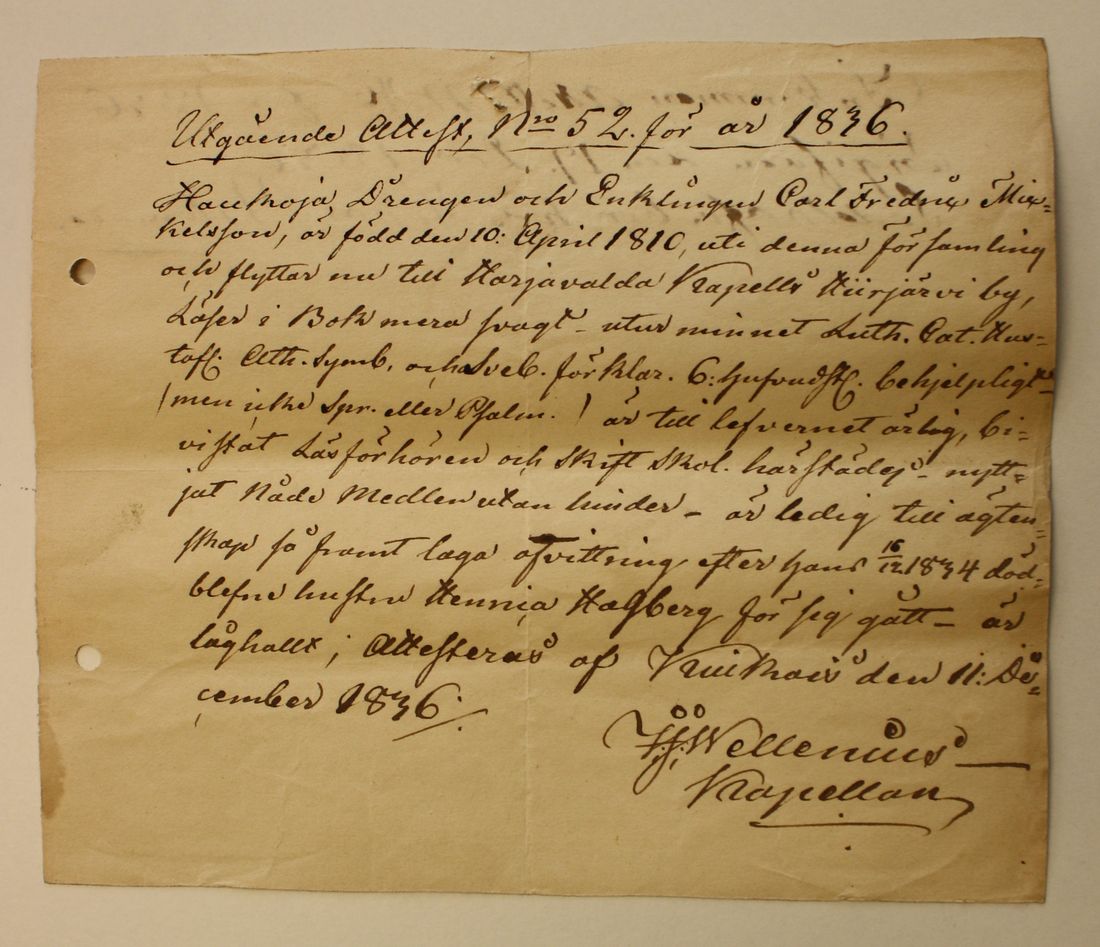 Utgående Attest, Nro 52. för år 1836.
Haukoja Drengen och Enklingen Carl Fredrix Mix-
kelsson, är född den 10: April 1810, uti denna församling
och flyttar nu till Harjavalda Kapells Hiirjärvi by,
Läser i Bok mera svagt - utur minnet Luth. Cat. Hus-
tafl. Ath. Symb. och Sveb. förklar. 6: hufvudst. behjelpligt -
(men icke Spr. eller Psalm.) är till lefvernet ärlig, bi-
vistat Läsförhören och Skift Skol. härstädes - nytt-
jat Nåde Medlen utan hinder - är ledig till ägten-
skap så framt laga afvittring efter hans 16/12 1834 död-
blefne hustru Henrica Hagberg för sig gått - är
låghallt; Attesteras af Kiukais den 11: De-
cember 1836.
Wellenius
Kapellan